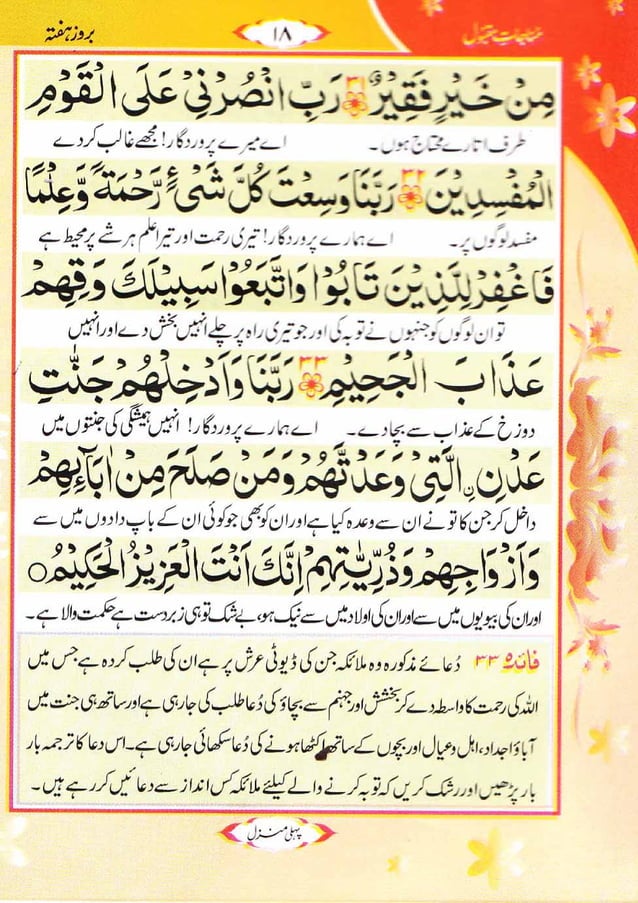 مناجات مقبول
۱۸
بروز ہفتہ
مِنْ خَيْرٍ فَقِيْرٌ ۳۱ رَبِّ انْصُرْنِيْ عَلَى الْقَوْمِ
طرف اتارے محتاج ہوں۔ اے میرے پروردگار! مجھے غالب کر دے
الْمُفْسِدِيْنَ ۳۲ رَبَّنَا وَسِعْتَ كُلَّ شَيْءٍ رَّحْمَةً وَّعِلْمًا
مفسد لوگوں پر۔ اے ہمارے پروردگار! تیری رحمت اور تیرا علم ہر شے پر محیط ہے
فَاغْفِرْ لِلَّذِيْنَ تَابُوْا وَاتَّبَعُوْا سَبِيْلَكَ وَقِهِمْ
تو ان لوگوں کو جنہوں نے توبہ کی اور جو تیری راہ پر چلے انہیں بخش دے اور انہیں
عَذَابَ الْجَحِيْمِ ۳۳ رَبَّنَا وَاَدْخِلْهُمْ جَنّٰتِ
دوزخ کے عذاب سے بچا دے۔ اے ہمارے پروردگار! انہیں ہمیشگی کی جنتوں میں
عَدْنِ ۨالَّتِيْ وَعَدْتَّهُمْ وَمَنْ صَلَحَ مِنْ اٰبَآئِهِمْ
داخل کر جن کا تو نے ان سے وعدہ کیا ہے اور ان کو بھی جو کوئی ان کے باپ دادوں میں سے
وَاَزْوَاجِهِمْ وَذُرِّيّٰتِهِمْ اِنَّكَ اَنْتَ الْعَزِيْزُ الْحَكِيْمُ ○
اور ان کی بیویوں میں سے اور ان کی اولاد میں سے نیک ہو، بے شک تو ہی زبردست ہے حکمت والا ہے۔
فائدہ ۳۳ دُعائے مذکورہ وہ ملائکہ جن کی ڈیوٹی عرش پر ہے ان کی طلب کردہ ہے جس میں
اللہ کی رحمت کا واسطہ دے کر بخشش اور جہنم سے بچاؤ کی دُعا طلب کی جا رہی ہے اور ساتھ ہی جنت میں
آباؤ اجداد، اہل و عیال اور بچوں کے ساتھ اکٹھا ہونے کی دُعا سکھائی جا رہی ہے۔ اس دعا کا ترجمہ بار
بار پڑھیں اور رشک کریں کہ توبہ کرنے والے کیلئے ملائکہ کس انداز سے دعائیں کر رہے ہیں۔
پہلی منزل